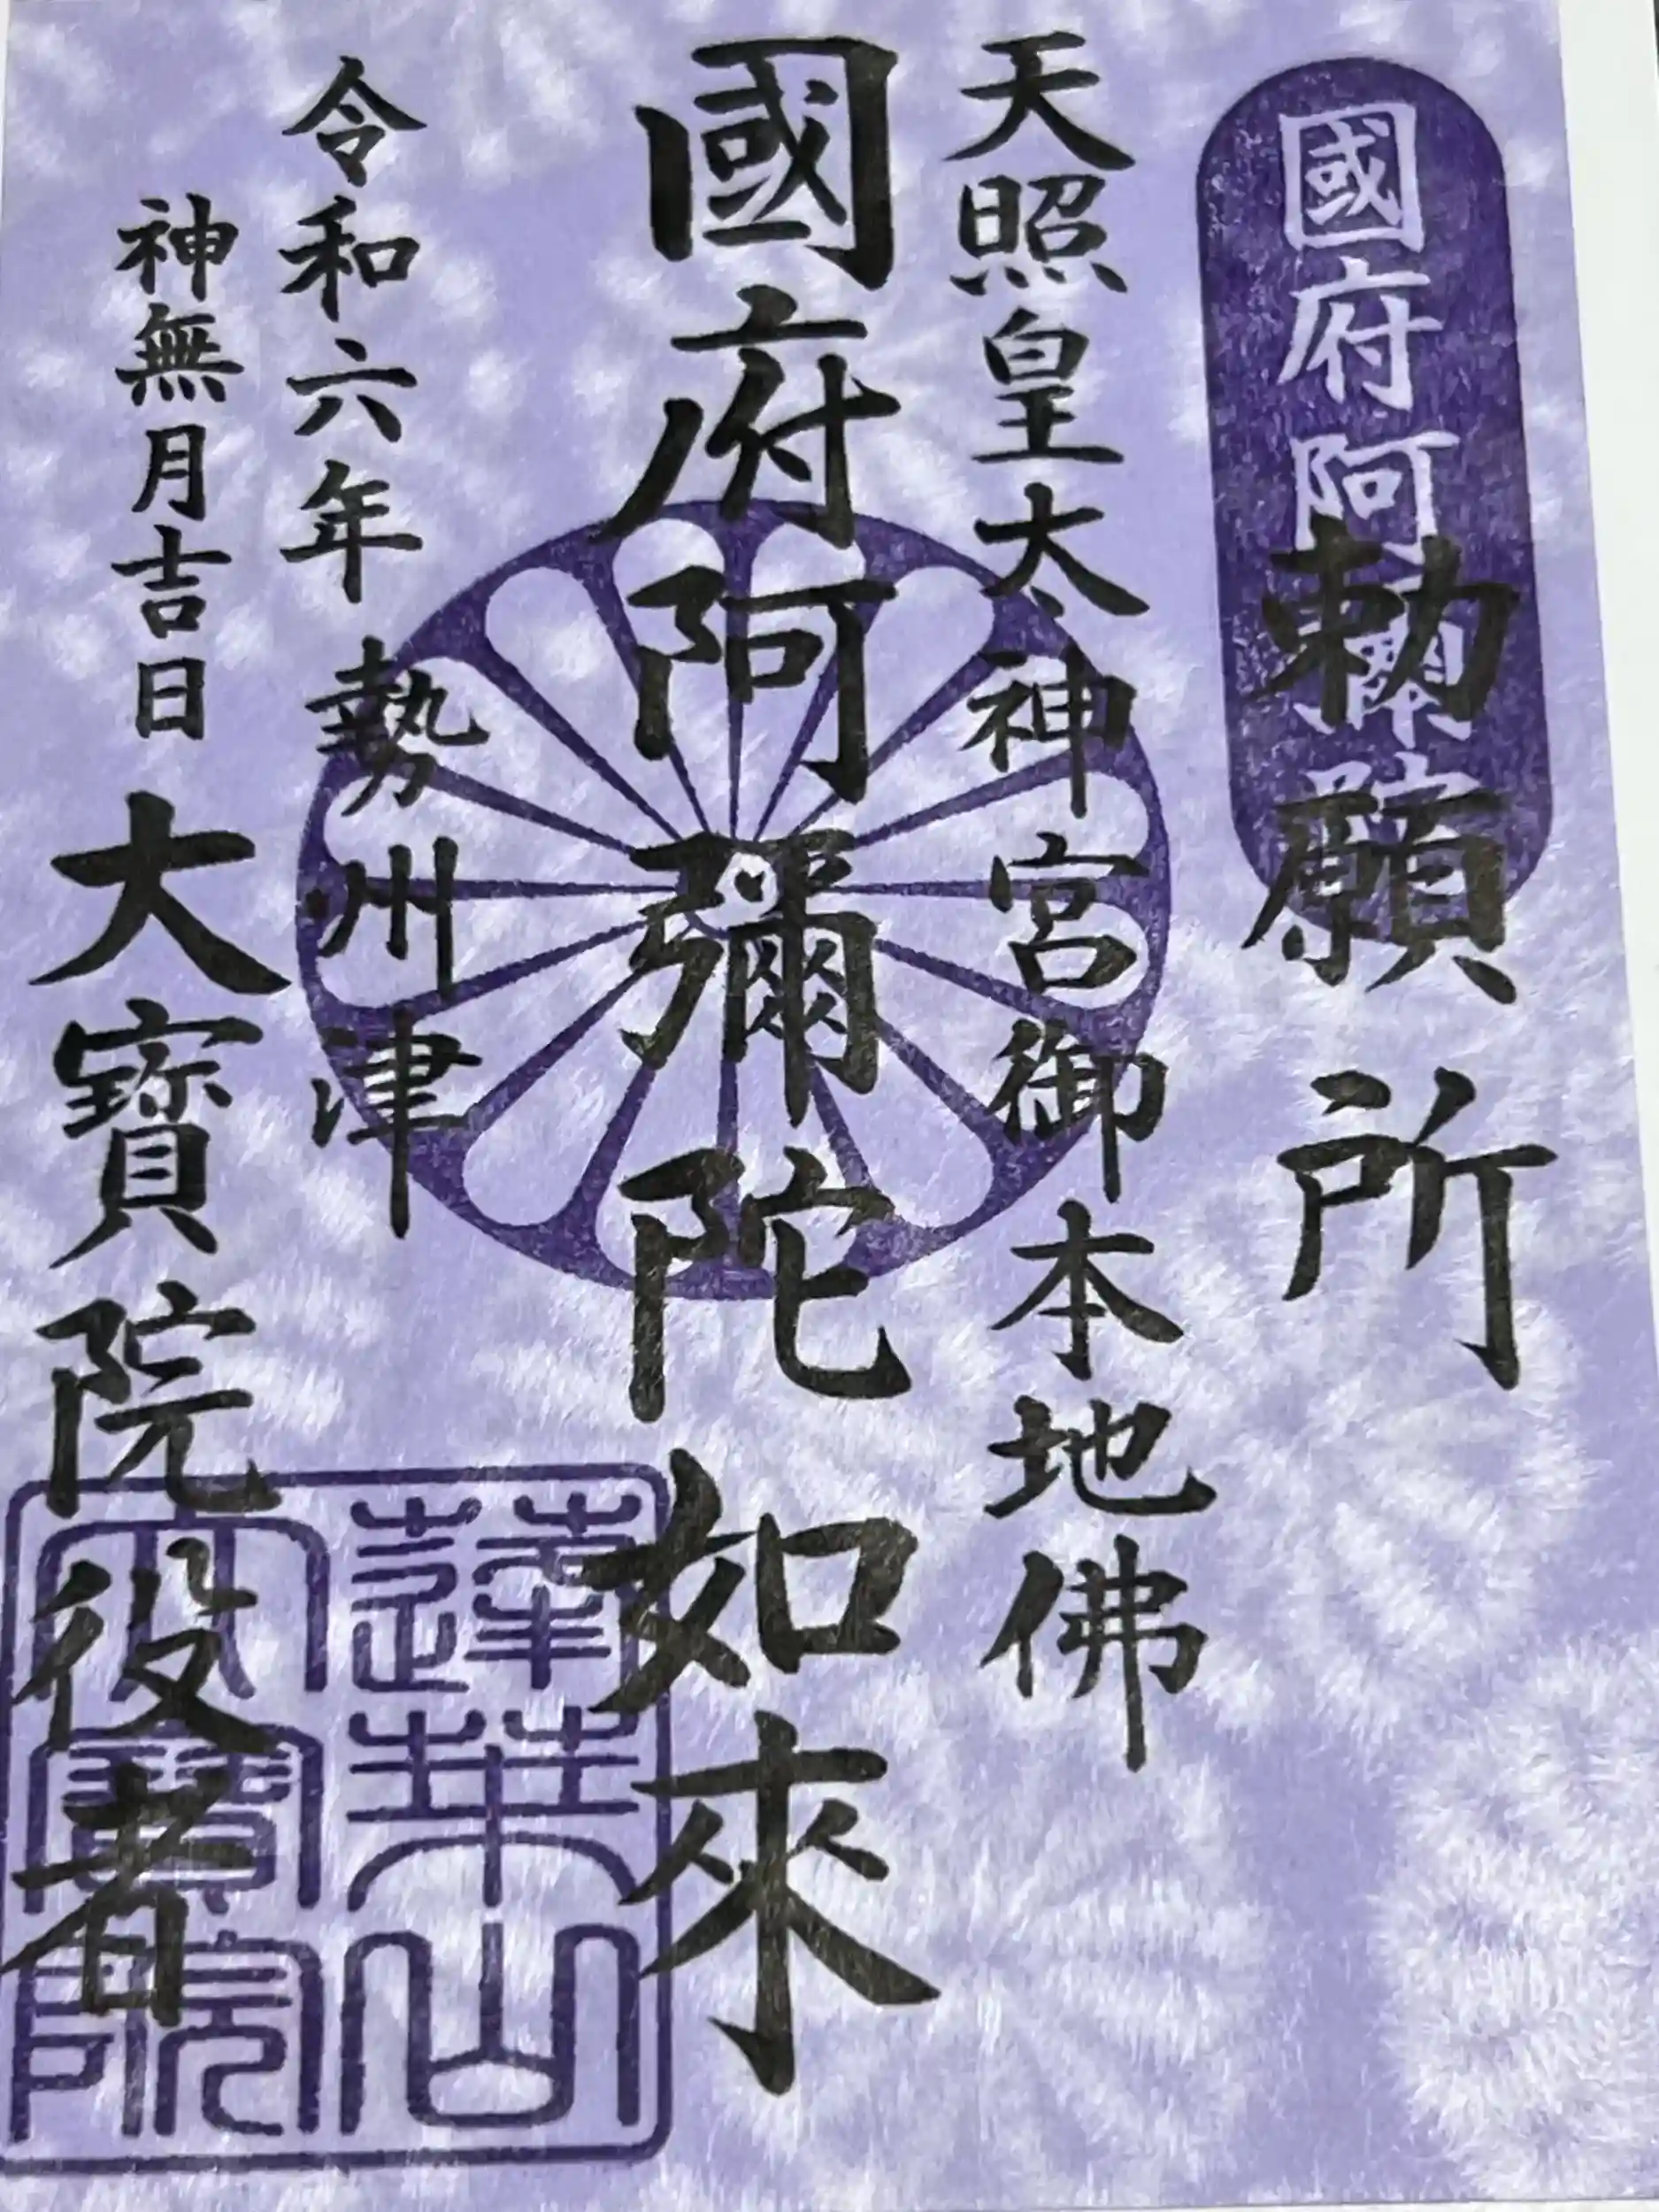 國府阿彌陀
勅願所
天照皇太神宮御本地佛
國府阿彌陀如來
令和六年
神無月吉日
勢州津
大寶院役者
蓮華山
大寶院印